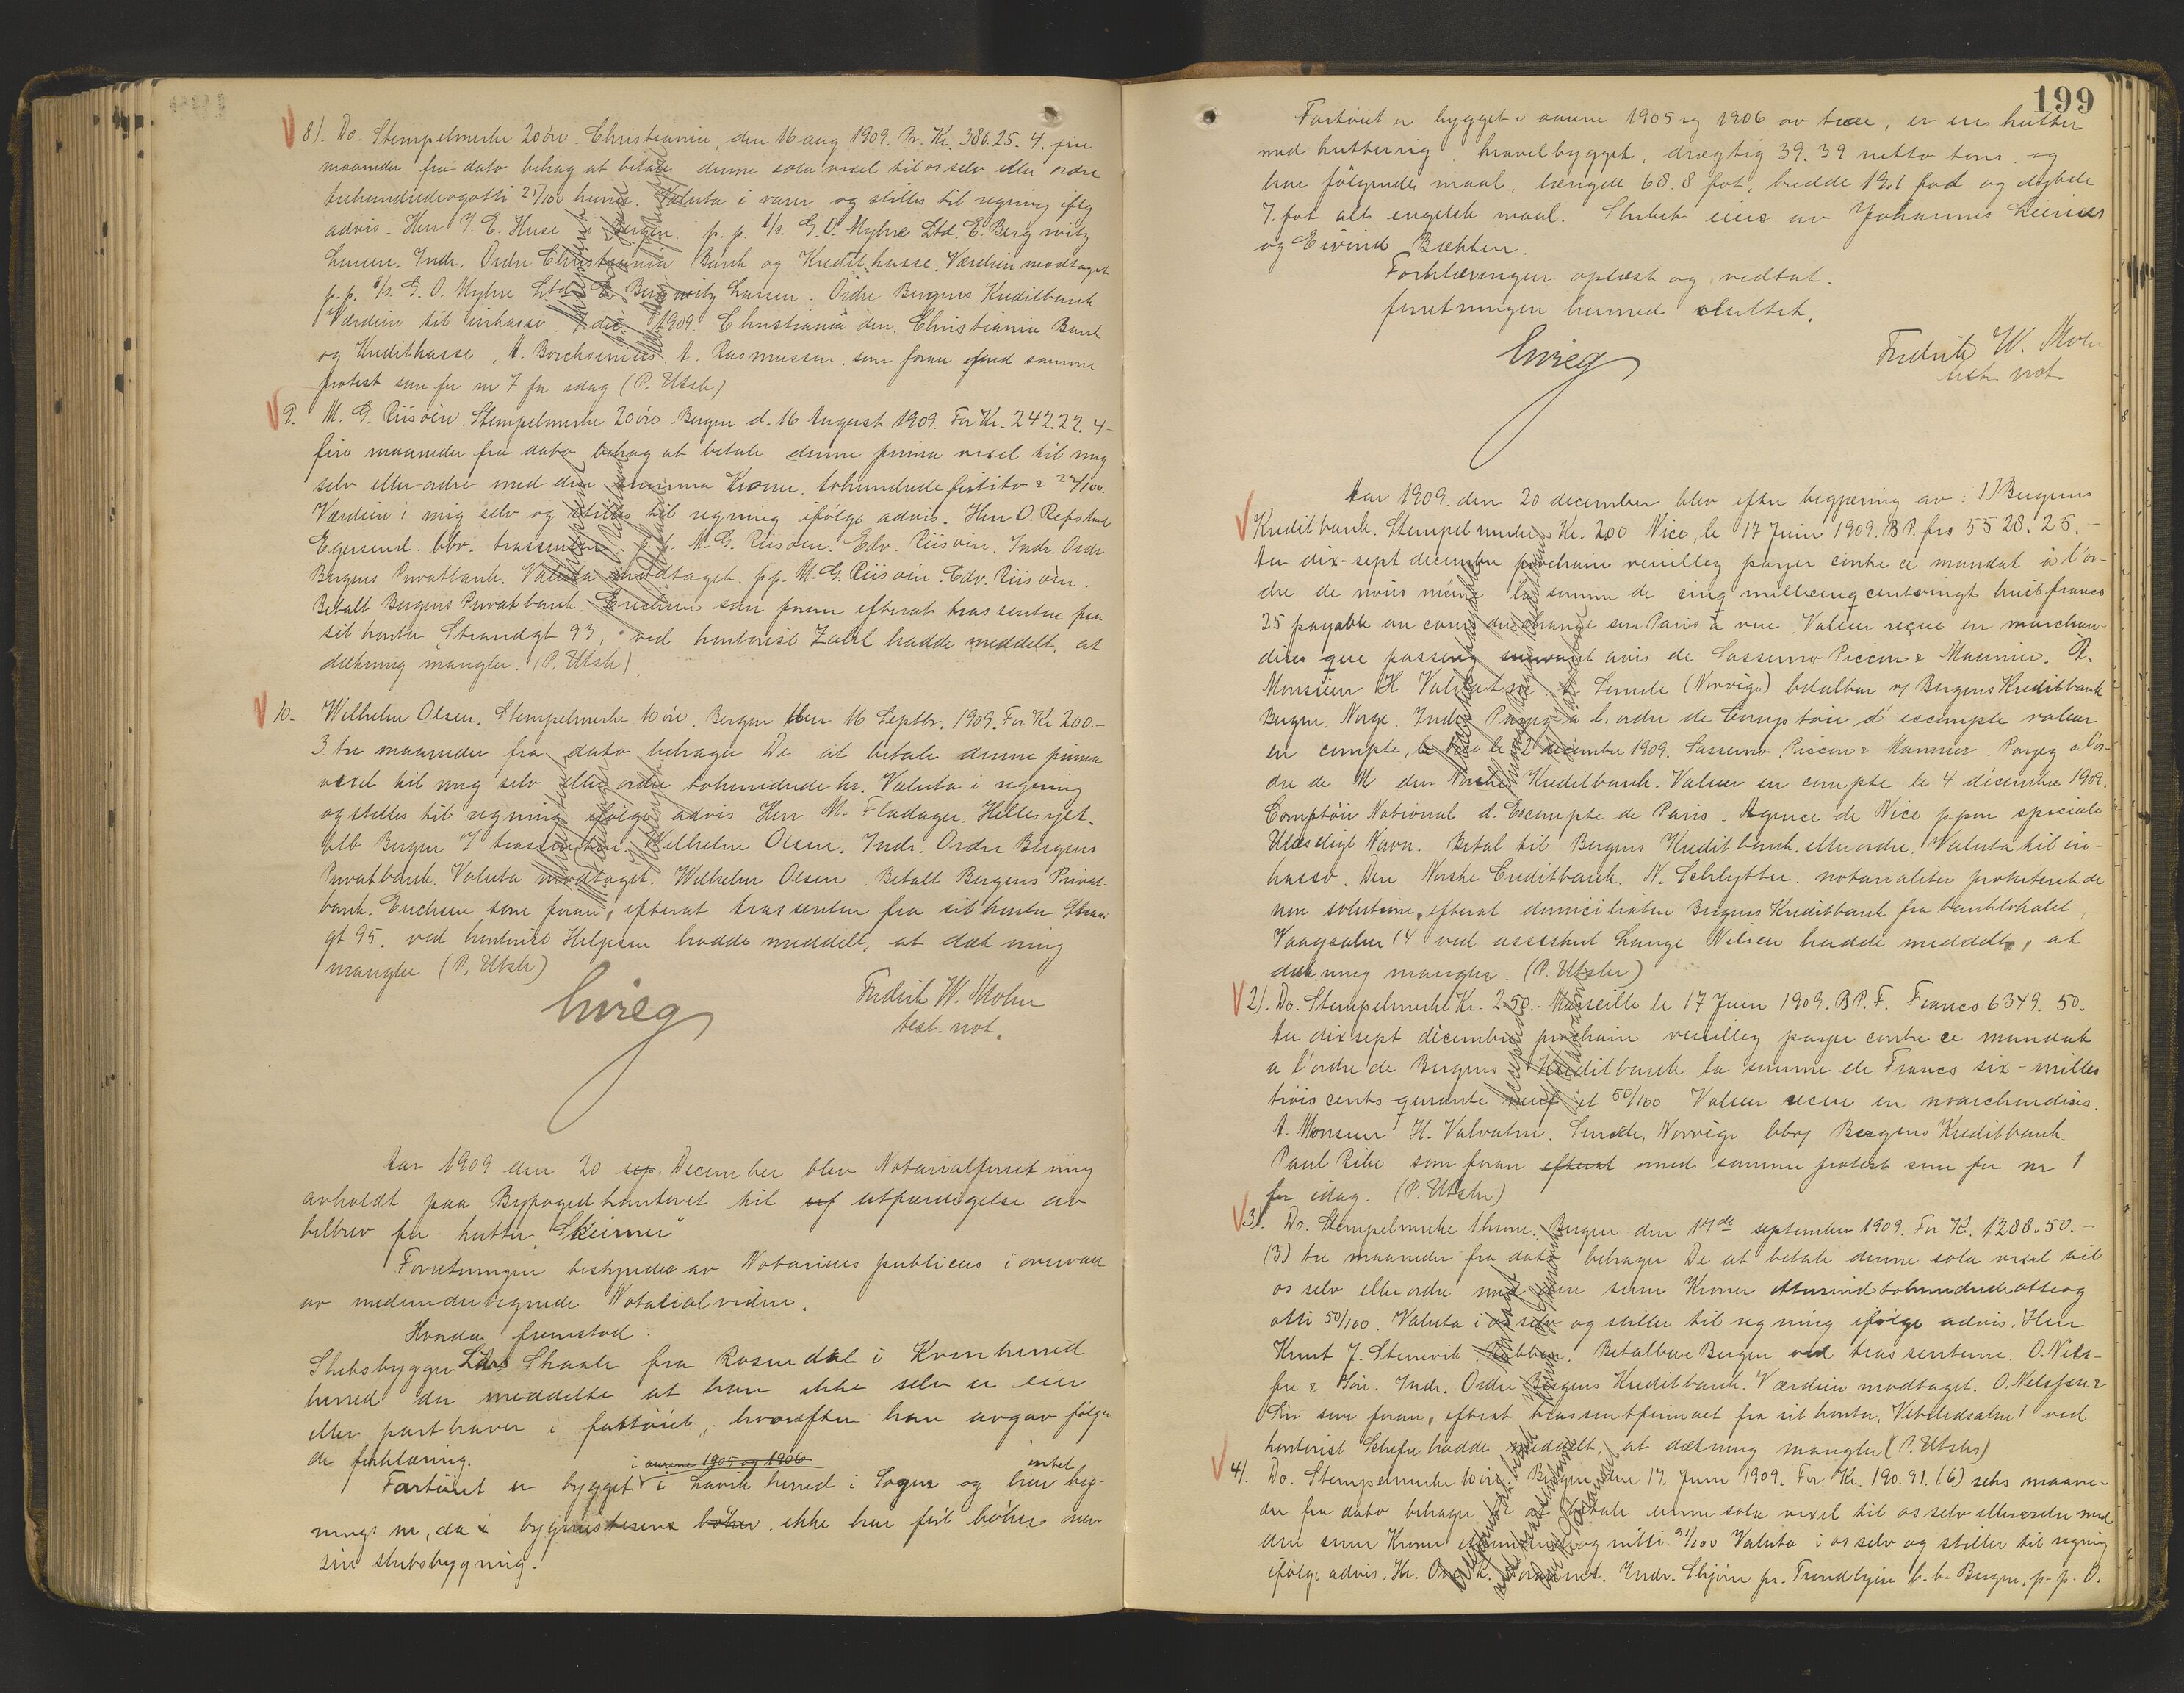 8). Do. Stempelmerke 20 øre. Christiania, den 16 aug 1909. Pr. Kr. 386.25. 4. fire
maaneder fra dato behag at betale denne sola vexel til os selv eller ordre
trehundredeogotti 25/100 Valuta i varer og stilles til regning iflg
advis. Herr J. E. Huse i Bergen. p. p. A/s. G. O. Myhre Ltd. E. Berg witz
Larsen. Indr. Ordre Christiania Bank og Kredit kasse. Værdien modtaget
p. p. A/s. G. O. Myhre Ltd. E. Berg witz Larsen. Ordre Bergens Kreditbank
Værdien til inkasso. 1909. Christiania den. Christiania Bank
og Kreditkasse. A. Borchsenius. A. Rasmussen. som foran med samme
protest som for nr 7 for idag (P. Utsk)
9. M. G. Riisøen. Stempelmerke 20 øre. Bergen d. 16 August 1909. For Kr. 242.22. 4-
fire maaneder fra dato behag at betale denne prima vexel til mig
selv eller ordre med den summa Kroner. tohundrede firtito & 22/100.
Værdien i mig selv og stilles til regning ifølge advis. Herr O. Refsland
Egersund. bbr. trassenten. M. G. Riisøen. Edv. Riisøen. Indr. Ordre
Bergens Privatbank. Valuta modtaget. pp. M. G. Riisøen. Edv. Riisøen.
Betalt Bergens Privatbank. Erichsen som foran efterat trassenten fra
sit kontor Strandgt 93, ved kontorist Zahl hadde meddelt, at
dækning mangler. (P. Utsk)
10. Wilhelm Olsen. Stempelmerke 10 øre. Bergen den 16 Septbr. 1909. For Kr 200.-
3 tre maaneder fra dato behager De at betale denne prima
vexel til mig selv eller ordre tohundrede kr. Valuta i regning
og stilles til regning ifølge advis Herr M. Fladager. Hillesøjet.
blb Bergen trassenten. Wilhelm Olsen. Indr. Ordre Bergens
Privatbank. Valuta modtaget. Wilhelm Olsen. Betalt Bergens Privat-
bank. Erichsen som foran, efterat trassenten fra sit kontor
gt 95. ved kontorist hadde meddelt, at dæk ning
mangler (P. Utsk)
Fredrik W. Mohn
test. not.
Aar 1909 den 20 sep. December blev Notarialforret ning
avholdt paa Byfogedkontoret til utfærdigelse av
bilbrev for kutter "Skirner"
Forretningen bestyredes av Notarius publicus i overvær
av medundertegnede Notarialvidne.
Hvorda fremstod:
Skibsbygger Lars Skaale fra Rosendal i Kvinherred
herred der meddelte at han ikke selv er eier
eller parthaver i fartøiet, hvorefter han avgav følgen
de forklæring. i aarene 1905 og 1906 intet
Fartøiet er bygget i Lavik herred i Sogn og har byg-
nings nr, da bygmesteren bøker ikke har ført bøker over
sin skibsbygning.
199
Fartøiet er bygget i aarene 1905 og 1906 av træ, er en kutter
med kutterrig kravelbygget, drægtig 39.39 netto tons og
har følgende maal, længde 68.8 fot, bredde 19.1 fod og dybde
7. fot alt engelsk maal. Skibet eies av Johannes
og Eivind Bækken.
Forklæringen oplæst og vedtat.
forretningen hermed sluttet.
Fredrik W. Mohn
test. not.
Aar 1909. den 20 december blev efter begjæring av: 1) Bergens
Kreditbank. Stempelmerke Kr. 2.00 Nice, le 17 Juin 1909. B.P. frs 5528.25.-
Au dix-sept décembre prochain veuillez payer contre ce mandat à l'or-
dre de nous même la somme de cinq millecinqcentsvingt huit francs
25 payable au cours du change sur Paris à vue. Valeur reçue en marchan-
dises que passerez suivant avis de Sasserno Piccon & Maunier. A.
Monsieur H Valvatne. à Sunde (Norvège) betalbar v/ Bergens Kreditbank
Bergen. Norge. Indr. Payez a l. ordre de Comptoir d'escompte valeur
en compte, le Nice le 2 décembre 1909. Sasserno, Piccon & Maunier. Payez a l'or-
dre de M den Norske Kreditbank. Valeur en compte le 4 décembre 1909.
Comptoir National d. Escompte de Paris. Agence de Nice p.pon speciale
Ulæseligt Navn. Betal til Bergens Kreditbank. eller ordre. Valuta til in-
kasso. Den Norske Creditbank. N. Schlytter. notarialiter protesteret de
non solutione, efterat domiciliaten Bergens Kreditbank fra banklokalet,
Vaagsalm. 14 ved assistent Lange Nilsen hadde meddelt, at
dækning mangler. (P. Utskr)
2). Do. Stempelmerke Kr. 2.50.- Marseille le 17 Juin 1909. B.P.F. Francs 6349.50.
Au dix sept décembre prochain veuillez payer contre ce mandat
a l'ordre de Bergens Kreditbank la somme de Francs six-milles
trois cents quarante neuf et 50/100 Valeur recue en marchandises.
A. Monsieur H. Valvatne. Sunde, Norvège bbr/ Bergens Kreditbank.
Paul Ribe som foran efterat med samme protest som for nr 1
for idag. (P. Utskr)
3). Do. Stempelmerke 1 krone. Bergen den 17de september 1909. For K. 1288.50.-
(3) tre maaneder fra dato behager De at betale denne sola vexel til
os selv eller ordre med den sum Kroner ettusindtohundredeotteog
otti 50/100. Valuta i os selv og stilles til regning ifølge advis. Herr
Knut J. Stenevik. Rubben. Betalbar Bergen ved trassenterne. O. Nils-
sen & Søn. Indr. Ordre Bergens Kreditbank. Værdien modtaget. O. Nilssen &
Søn som foran, efterat trassentfirmaet fra sit kontor, Vetrlidsalm 1 ved
kontorist hadde meddelt, at dækning mangler (P. Utskr)
4). Do. Stempelmerke 10 øre. Bergen den 17. Juni 1909. For Kr. 190.91. (6) seks maane-
der fra dato behager De at betale denne sola vexel til os selv ellerordre med
den sum Kroner ethundrede og nitti 91/100 Valuta i os selv og stilles til regning
ifølge advis. Hr. Indr. Skjørn pr. Trondhjem b.b. Bergen, p.p. O.